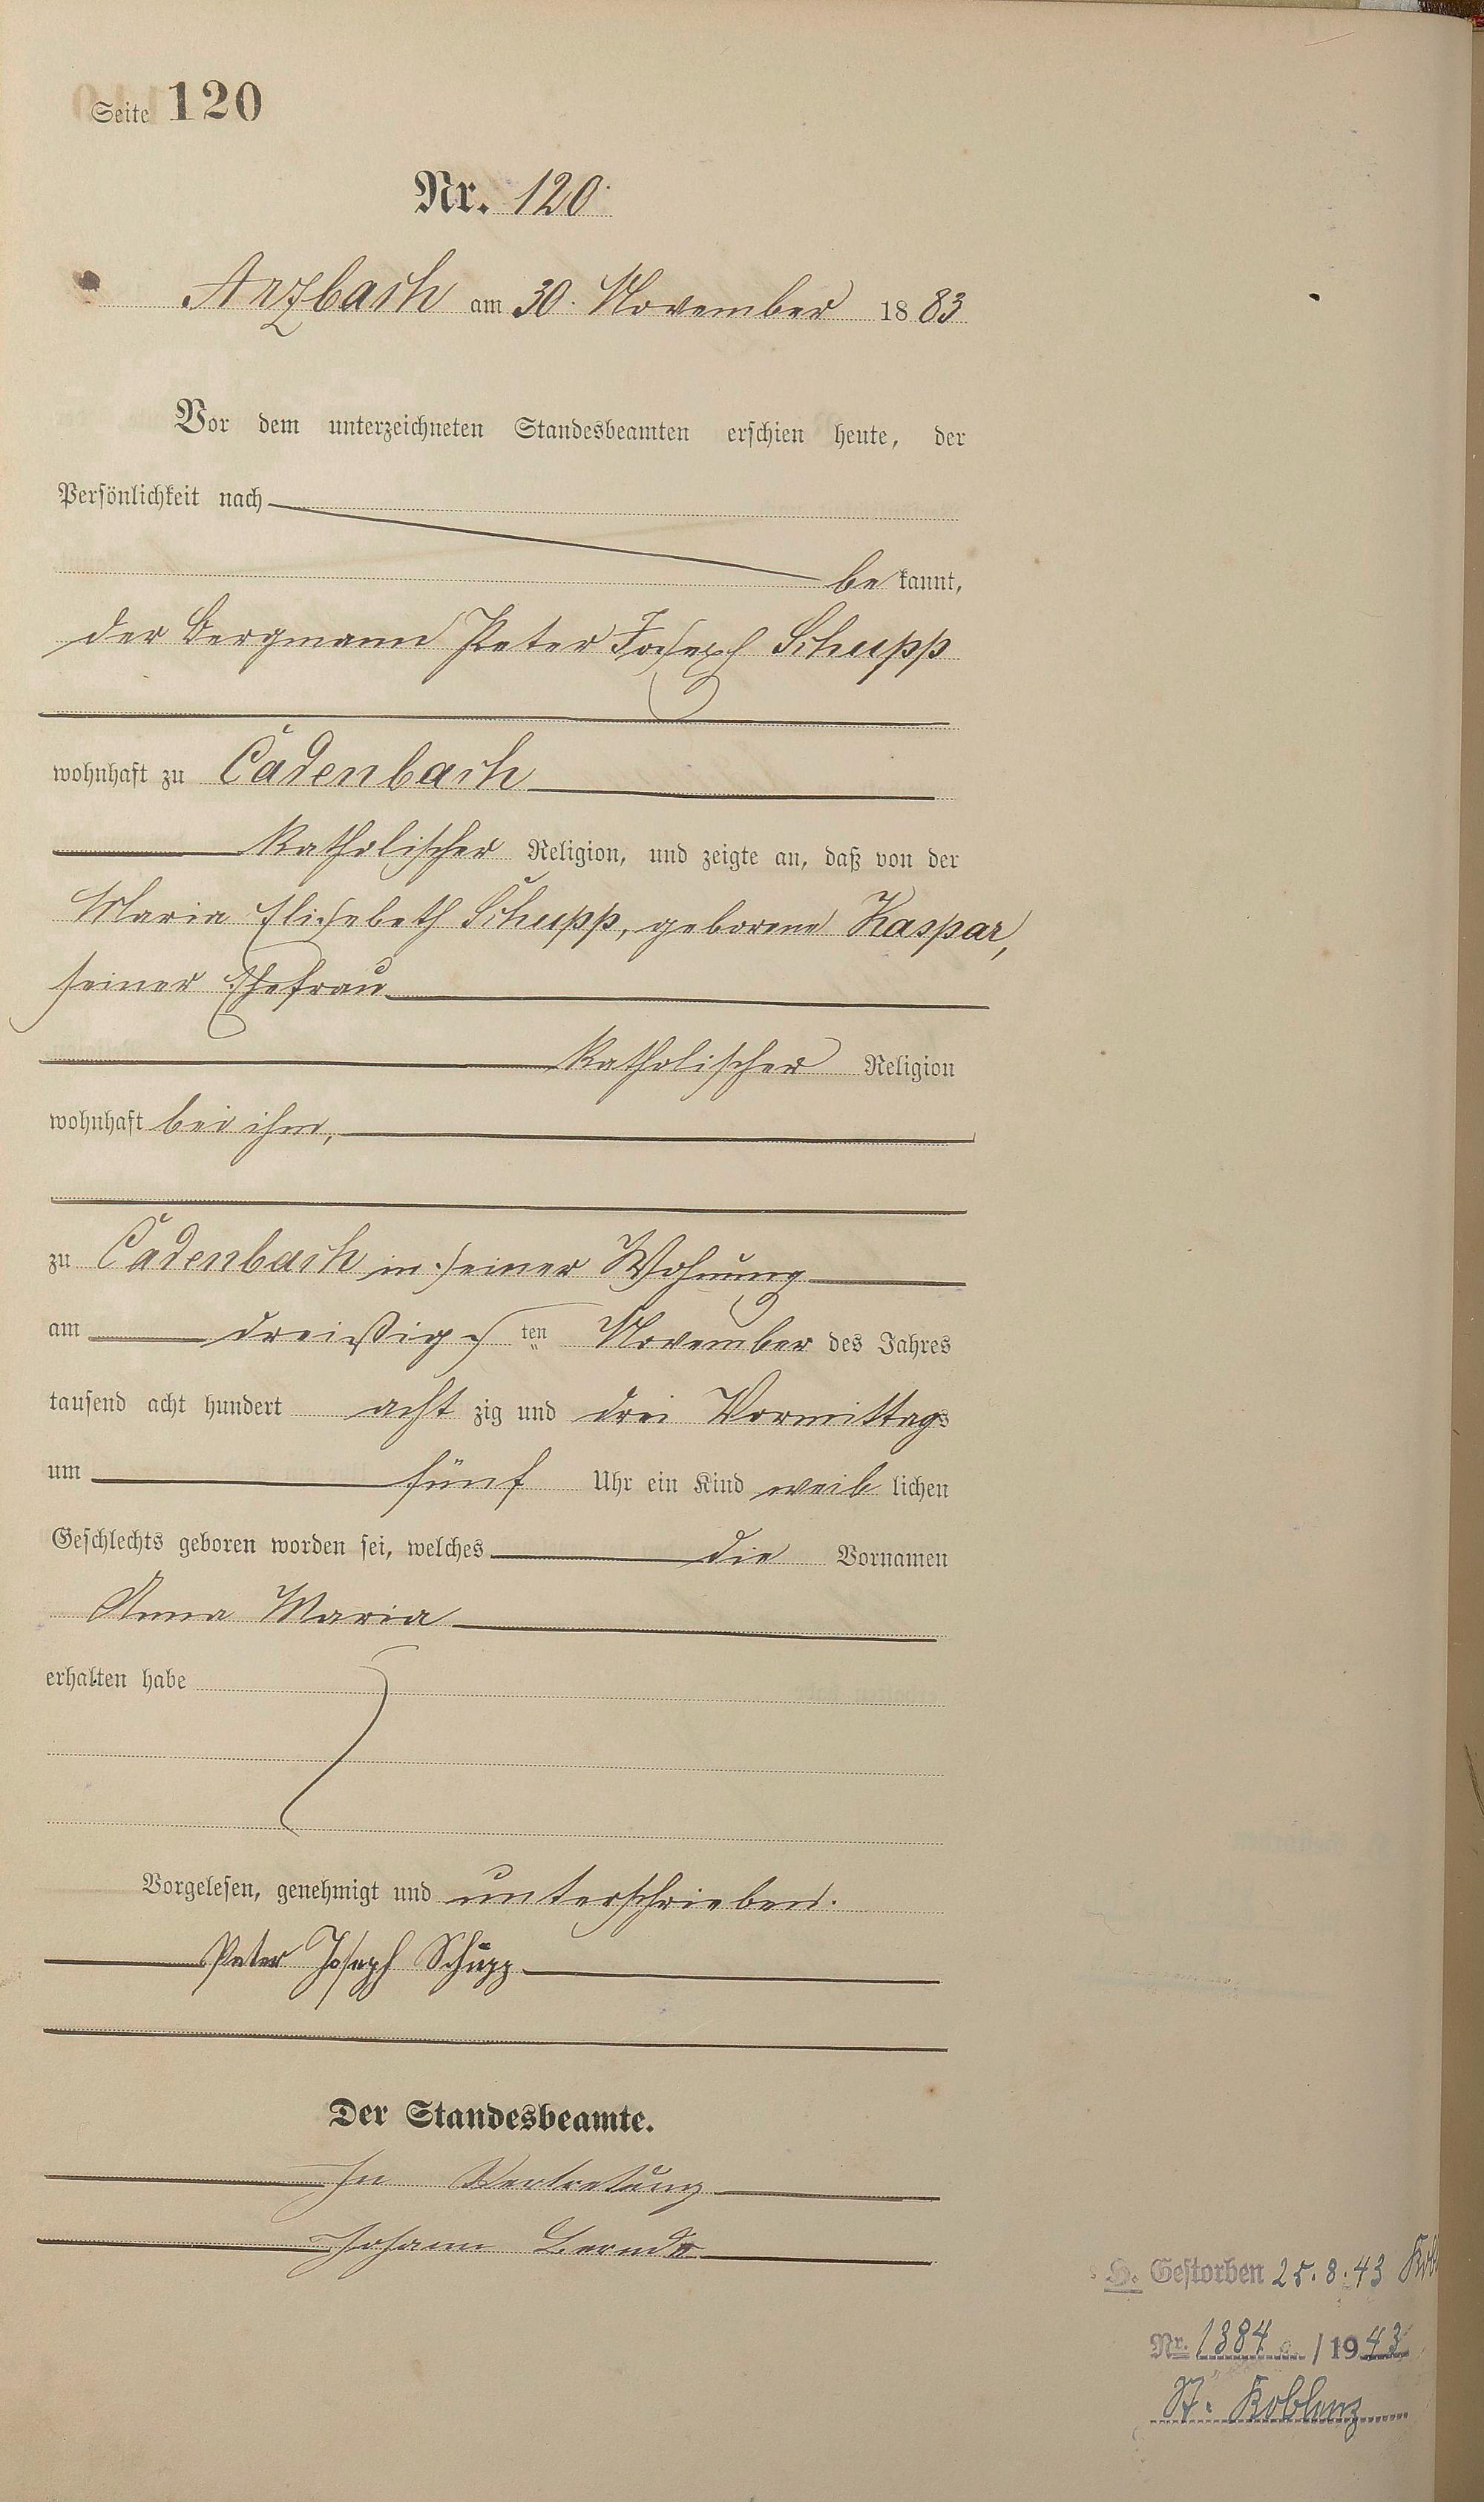 Seite 120
Nr. 120.
Arzbach am 30. November 1883
Vor dem unterzeichneten Standesbeamten erschien heute, der
Persönlichkeit nach
bekannt,
der Bergmann Peter Joseph Schupp
wohnhaft zu Cadenbach
katholischer Religion, und zeigte an, daß von der
Maria Elisebeth Schupp, geborene Kaspar,
seiner Ehefrau
katholischer Religion
wohnhaft bei ihm,
zu Cadenbach in seiner Wohnung
am dreißigsten November des Jahres
tausend acht hundert achtzig und drei Vormittags
um fünf Uhr ein Kind weiblichen
Geschlechts geboren worden sei, welches die Vornamen
Anna Maria
erhalten habe
Vorgelesen, genehmigt und unterschrieben.
Peter Joseph Schupp
Der Standesbeamte.
In Vertretung
Johann
H. Gestorben 25.8.43
Nr. 1384 /1943
St. Koblenz